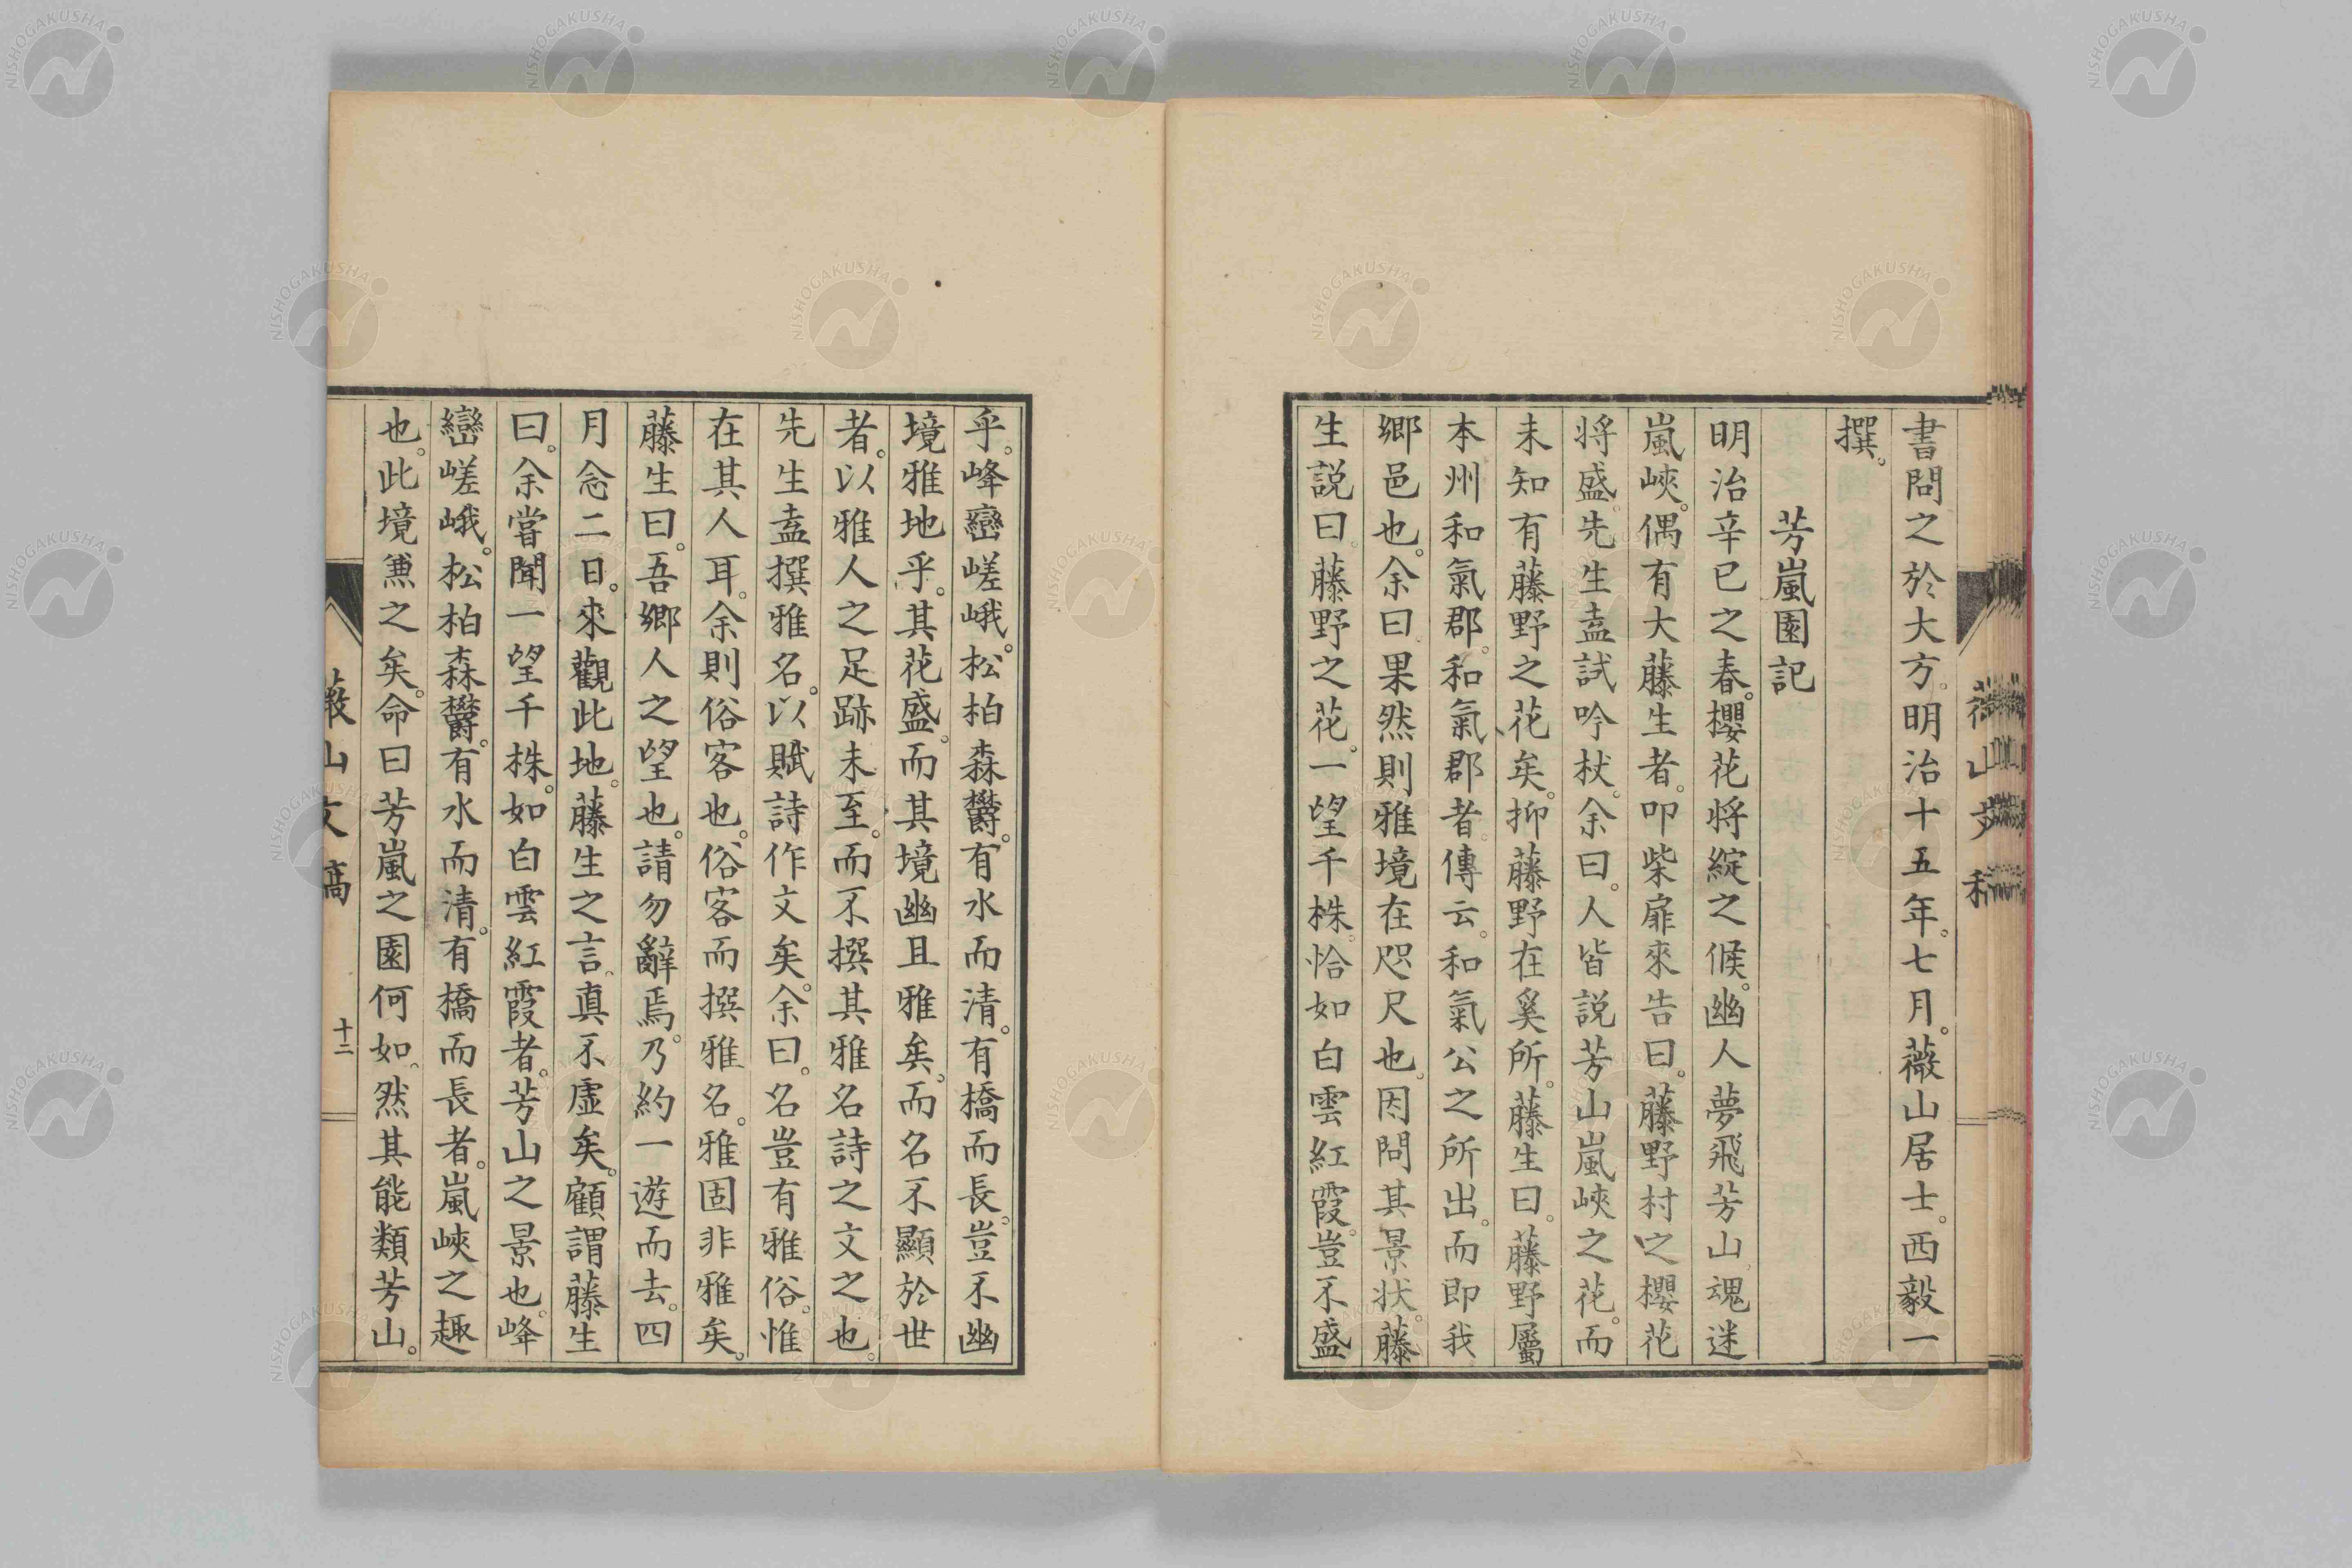 書問之於大方。明治十五年。七月。薇山居士。西毅一
撰。
芳嵐園記
明治辛巳之春。櫻花将綻之候。幽人夢飛芳山、魂迷
嵐峽。偶有大藤生者。叩柴扉來告曰。藤野村之櫻花
将盛。先生盍試吟杖。余曰。人皆説芳山嵐峽之花。而
未知有藤野之花矣。抑藤野在奚所。藤生曰。藤野屬
本州和氣郡。和氣郡者。傳云。和氣公之所出。而即我
郷邑也。余曰。果然則雅境在咫尺也。因問其景状。藤
生説曰。藤野之花。一望千株。恰如白雲紅霞。豈不盛
乎。峰巒嵯峨。松柏森欝。有水而清。有橋而長。豈不幽
境雅地乎。其花盛。而其境幽且雅矣。而名不顯於世
者。以雅人之足跡未至。而不撰其雅名詩之文之也。
先生盍撰雅名。以賦詩作文矣。余曰。名豈有雅俗。惟
在其人耳。余則俗客也。俗客而撰雅名。雅固非雅矣。
藤生曰。吾郷人之望也。請勿辭焉。乃約一遊而去。四
月念二日。來觀此地。藤生之言。真不虚矣。顧謂藤生
曰。余嘗聞一望千株。如白雲紅霞者。芳山之景也。峰
巒嵯峨。松柏森欝。有水而清。有橋而長者。嵐峽之趣
也。此境兼之矣。命曰芳嵐之園何如。然其能類芳山。
薇山文稿
十二